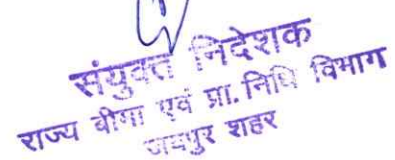 संयुक्त निदेशक
राज्य बीमा एवं प्रा. निधि विभाग
जयपुर शहर